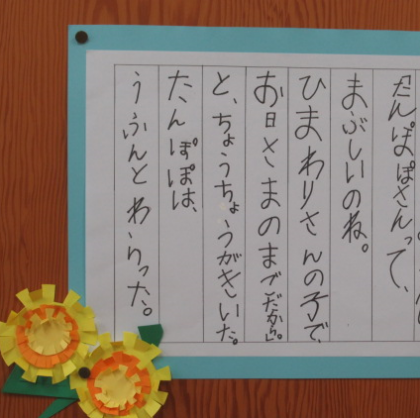 「たんぽぽさんって、
まぶしいのね。
ひまわりさんの子で、
お日さまのまごだから。」
と、ちょうちょうがきいた。
たんぽぽは、
うふんとわらった。